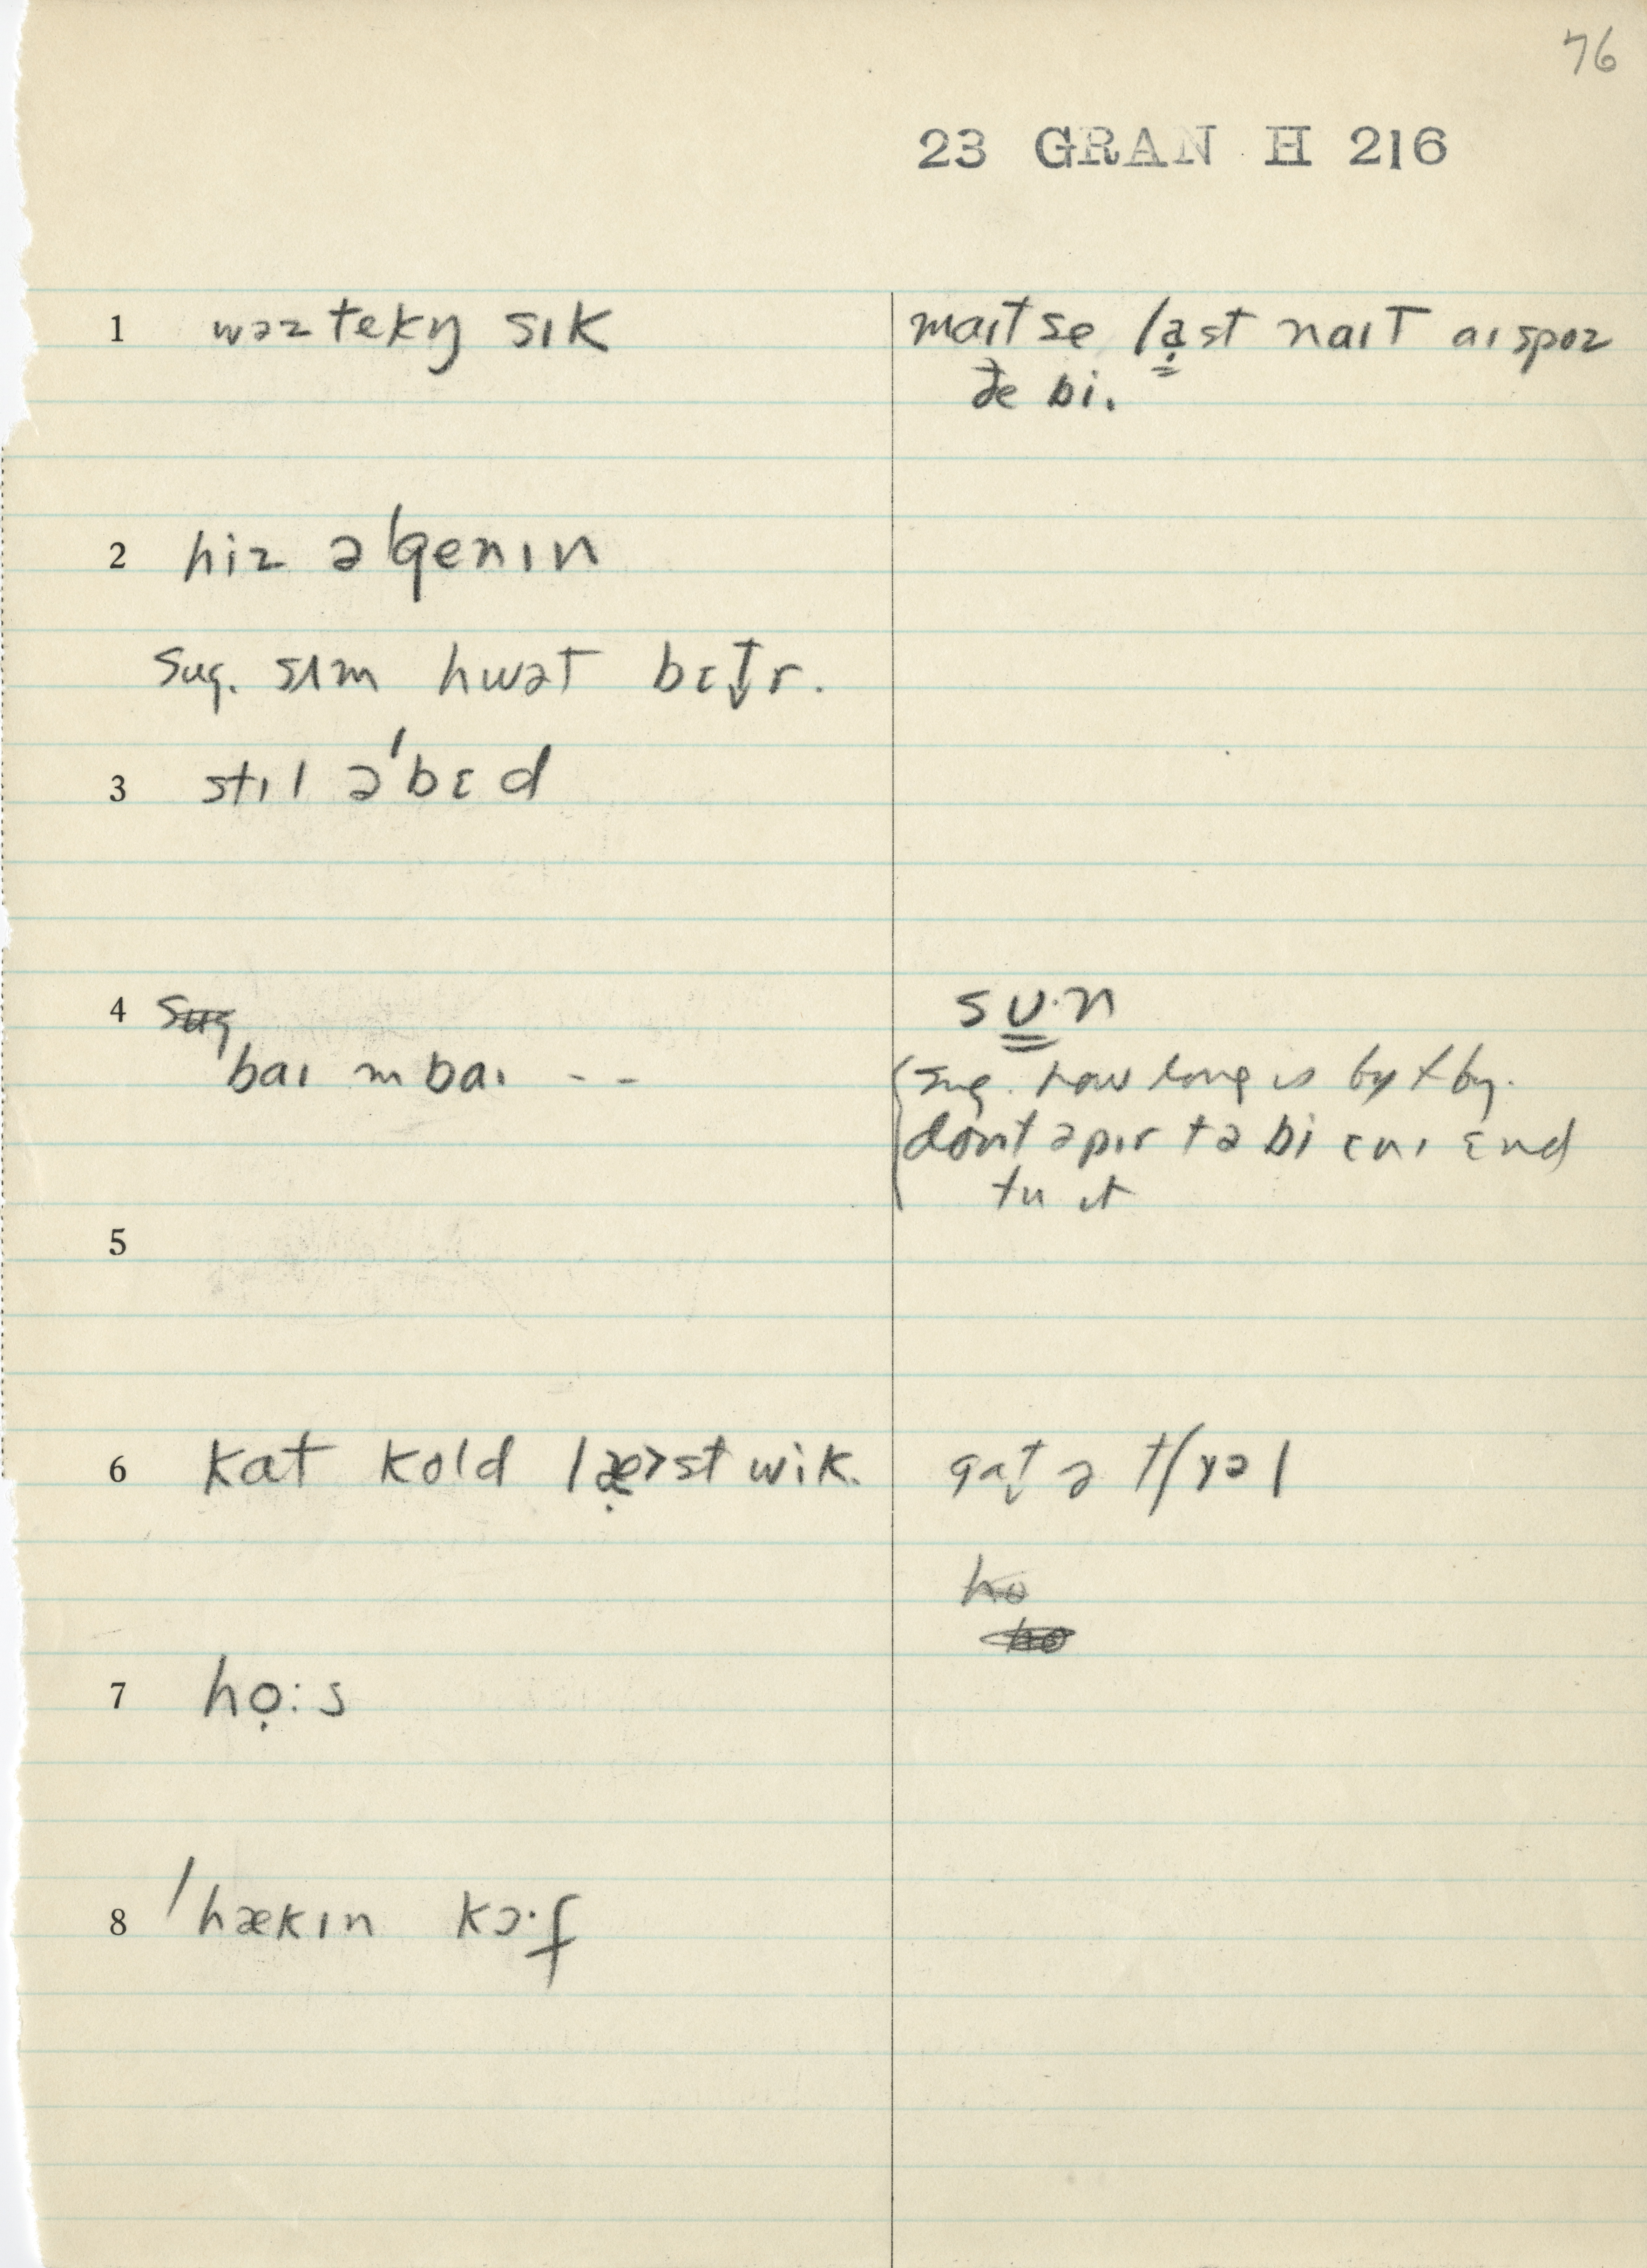 76
23 GRAN H 216
1 wəz tekŋ sɪk
maɪt se la̤st naɪt aɪ spoz
ðe bi.
2 hiz əˈgenɪn
sug. sʌm hwət bɛt̬r.
3 stɪl əˈbɛd
4 sug
baɪ m baɪ - -
sʊ·n
sug. how long is by + by.
dont əpɪr tə bi ɛnɪ ɛnd
tu ɪt
5
6 kat kold læ̣>st wik.
gat̬ ə tʃɪəl
ho
ho
7 họ:s
8 ˈhækɪn kɔ·f